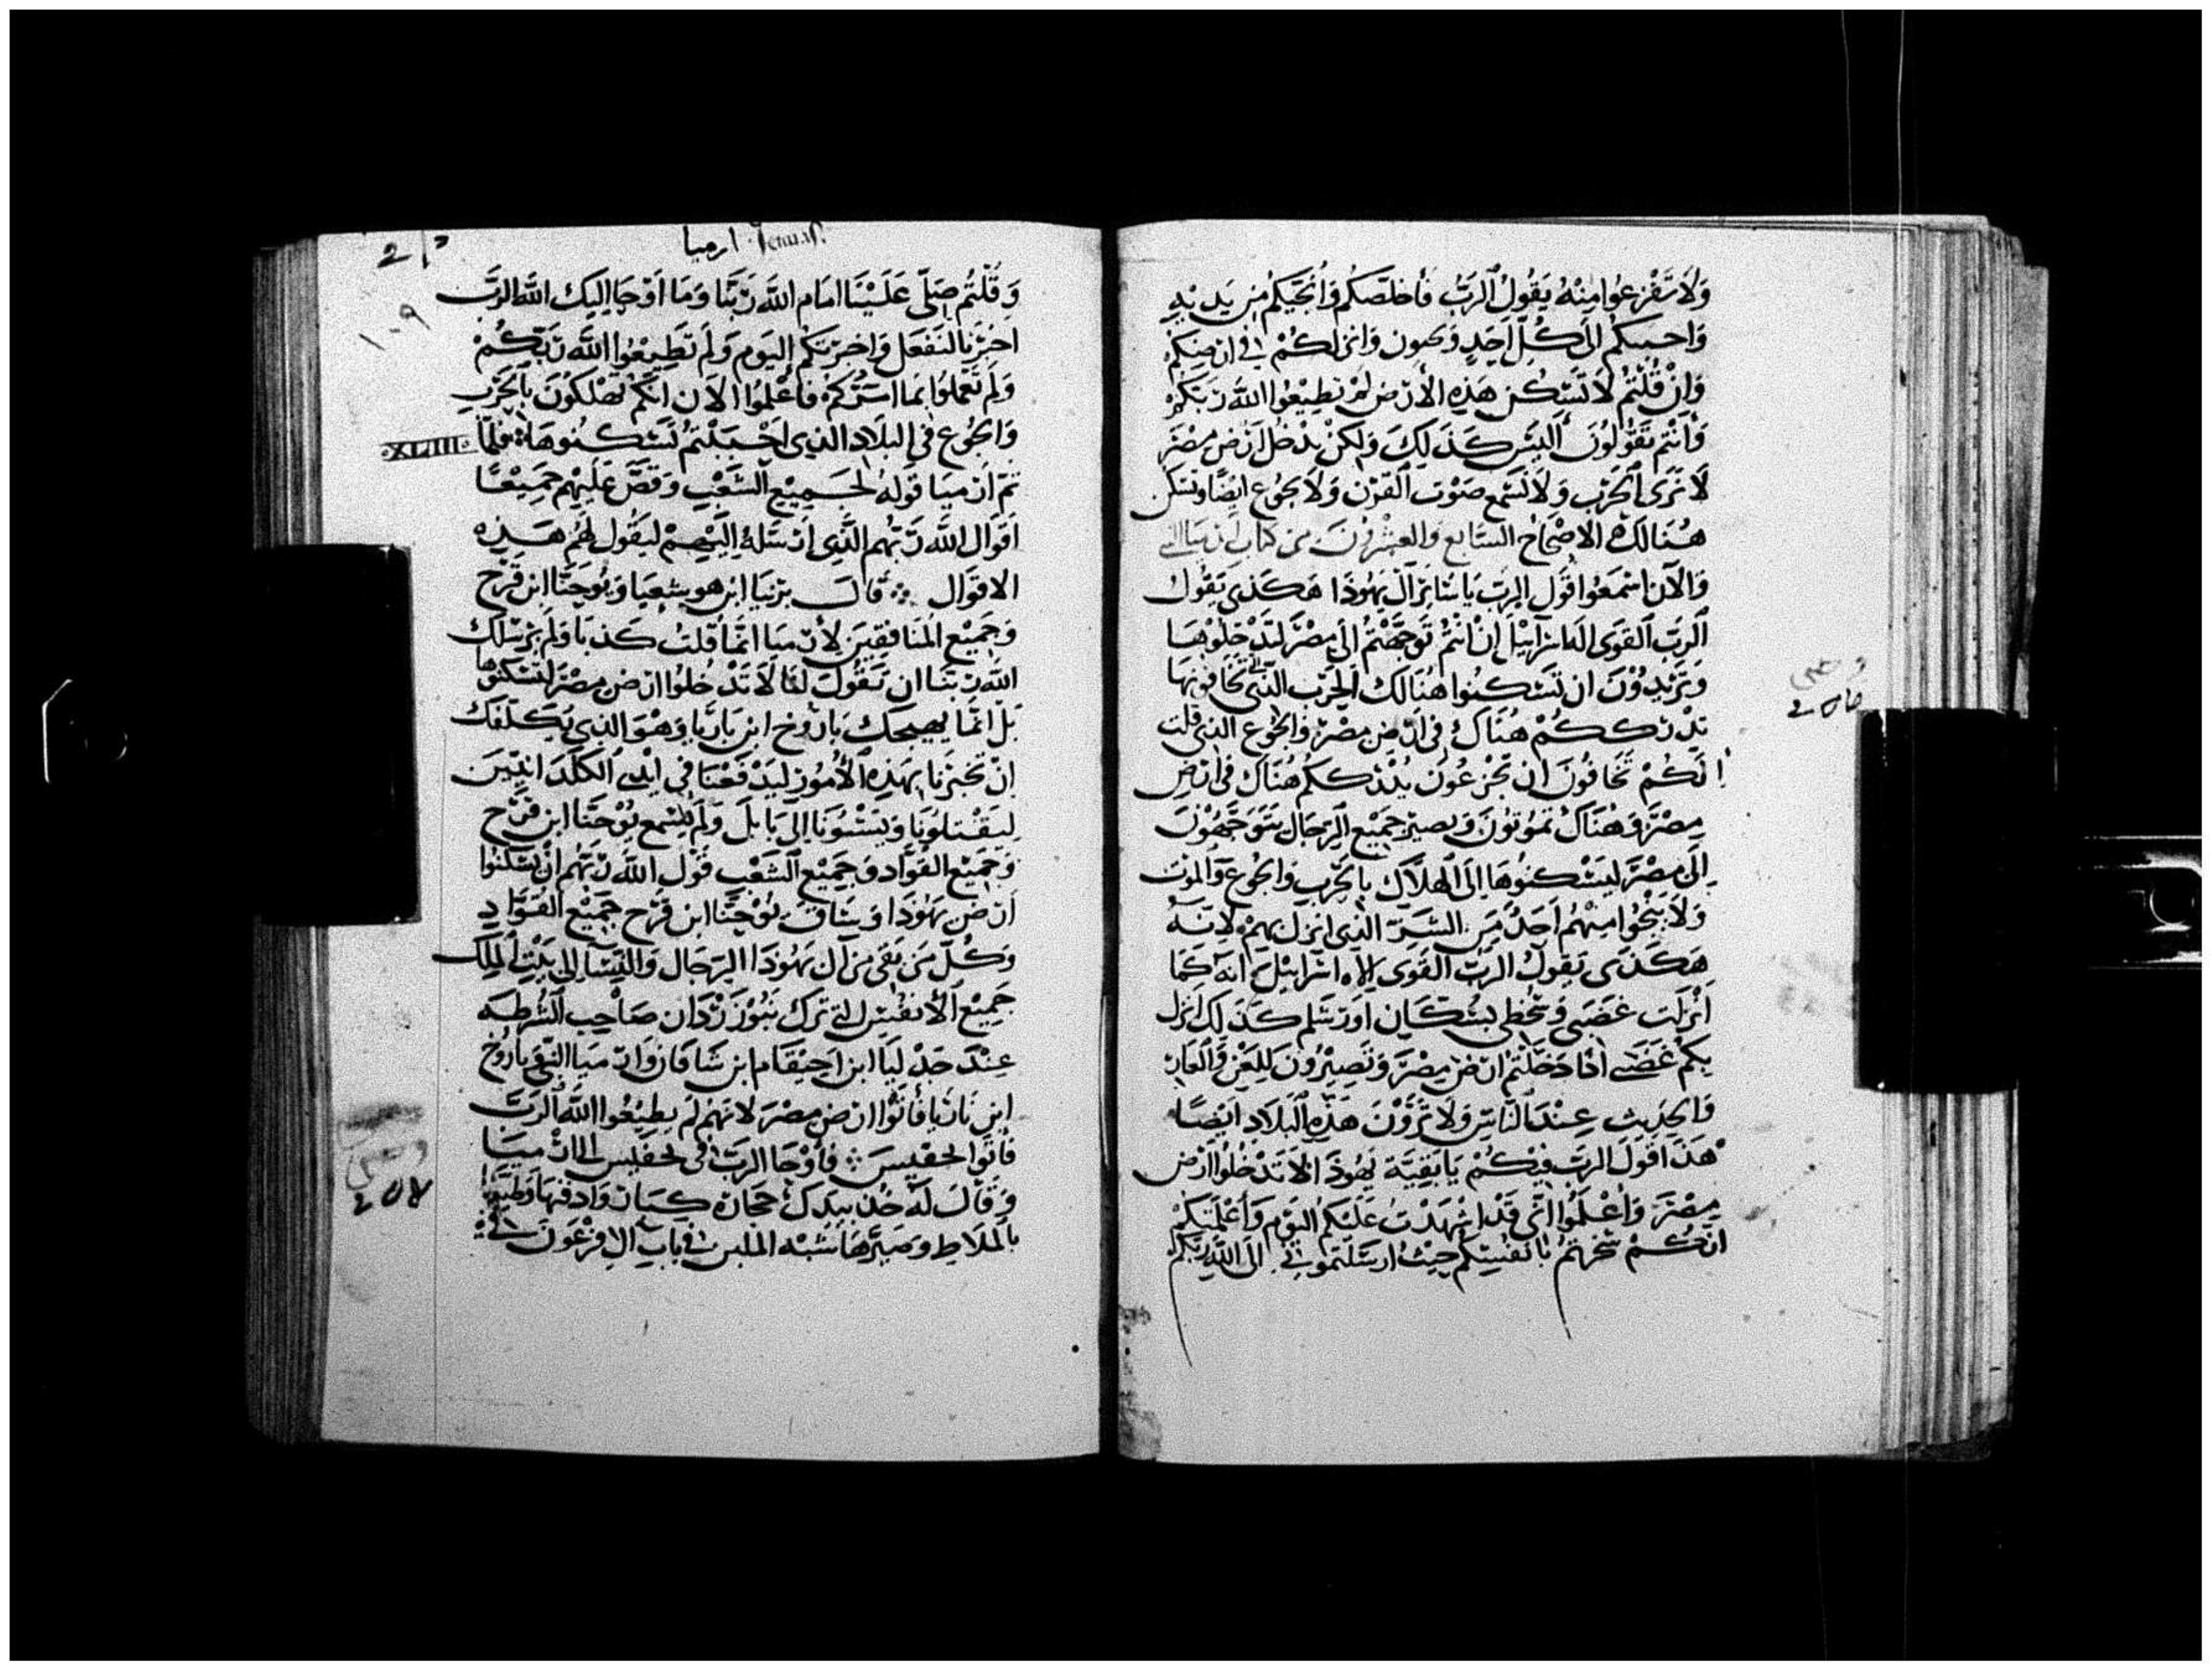 ولا تفزعوا منه يقول الرب فأخلصكم وأنجيكم من يديه
وارحمكم الى كل احد وحيون وانزلكم في ارضكم
وان قلتم لا نسكن هذه الارض لم نطيعوا الله ربكم
وانتم تقولون أليس كذلك ولكن ندخل ارض مصر
لا نرى الحرب ولا نسمع صوت القرن ولا نجوع ايضا ونسكن
هنالك الاصحاح السابع والعشرون من كتاب ارميا النبي
والآن اسمعوا قول الرب يا سائر آل يهوذا هكذى يقول
الرب القوى اله اسرائيل ان انتم توجهتم الى مصر لتدخلوها
وتريدون ان تسكنوا هنالك الحرب التي تخافونها
تدرككم هناك في ارض مصر والجوع الذي قلت
لكم تخافون ان تجزعون يدرككم هناك في ارض
مصر وهناك تموتون ويصير جميع الرجال يتوجهون
الى مصر ليسكنوها الى الهلاك بالحرب والجوع والموت
ولا ينجوا منهم احد من الشر الذي انزل بهم لانه
هكذى يقول الرب القوى الاه اسرائيل انه كما
انزلت غضبي وسخطى بسكان اورشلم كذلك انزل
بكم غضبي اذا دخلتم ارض مصر وتصيرون للعن والعار
والحديث عند الناس ولا ترون هذه البلاد ايضا
هذا قول الرب فيكم يا بقية يهوذا لا تدخلوا ارض
مصر واعلموا اني قد اشهدت عليكم اليوم وأعلمتكم
انكم سخرتم بانفسكم حيث ارسلتموني الى الله ربكم
ارميا
وقلتم صلي علينا امام الله ربنا وما أوحا اليك الله الرب
اخبرنا لنفعل واخبرتكم اليوم ولم تطيعوا الله ربكم
ولم تعملوا بما امركم فاعلموا الان انكم تهلكون بالحرب
والجوع في البلاد الذى احببتم تسكنوها فلما
XLIII
تم ارميا قوله لجميع الشعب وقص عليهم جميعا
اقوال الله ربهم الذي ارسله اليهم ليقول لهم هذه
الاقوال قال يزنيا ابن هوشعيا ويوحنا ابن قرح
وجميع المنافقين لارميا انما قلت كذبا ولم يرسلك
الله ربنا ان تقول لنا لا تدخلوا ارض مصر لتسكنوها
بل انما يهيجك باروخ ابن باريا وهو الذي يكلفك
ان تخبرنا بهذه الأمور ليدفعنا في ايدي الكلدانيين
ليقتلونا ويسبونا الى بابل ولم يسمع يوحنا ابن قرح
وجميع القواد وجميع الشعب قول الله ربهم ان يسكنوا
ارض يهوذا وساق يوحنا ابن قرح جميع القواد
وكل من بقى من آل يهوذا الرجال والنسا الى بيت الملك
جميع الأنفس التي ترك نبوزردان صاحب الشرطه
عند جدليا ابن احيقام ابن شافان وارميا النبي باروخ
ابن باريا فأتوا ارض مصر لانهم لم يطيعوا الله الرب
فأتوا لحفيس فأوحا الرب في لحفيس الى ارميا
وقال له خذ بيدك حجارة كبار وادفنها وطينها
بالملاط وصيرها شبه الملبن في باب ال فرعون